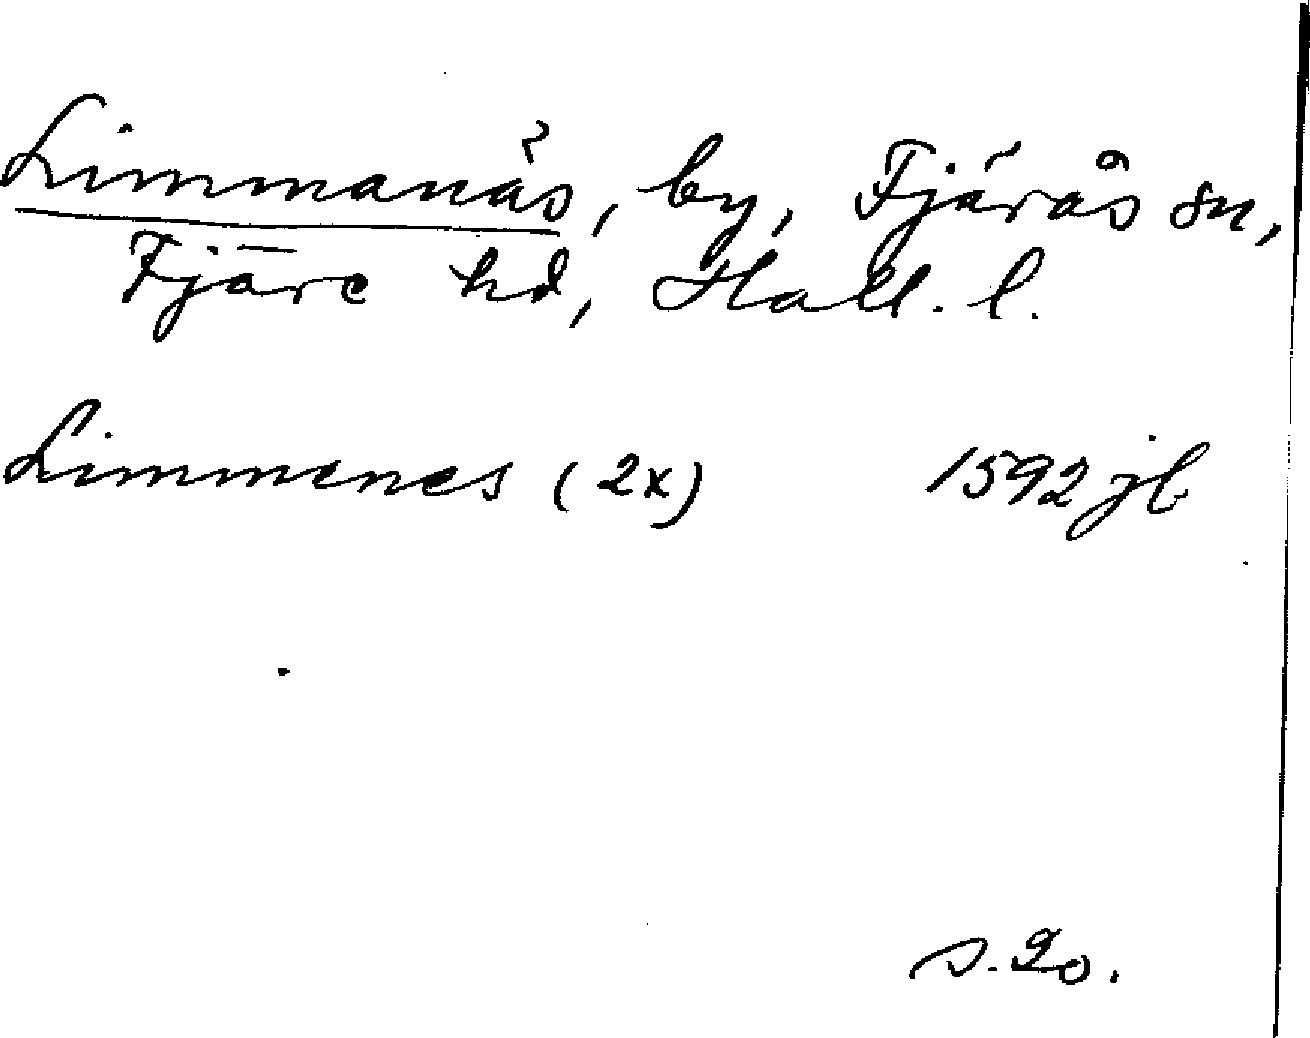 Limmanäs, by, Fjärås sn,
Fjäre hd, Hall. l.
Limmenes (2x) 1592 jb
s. 20.